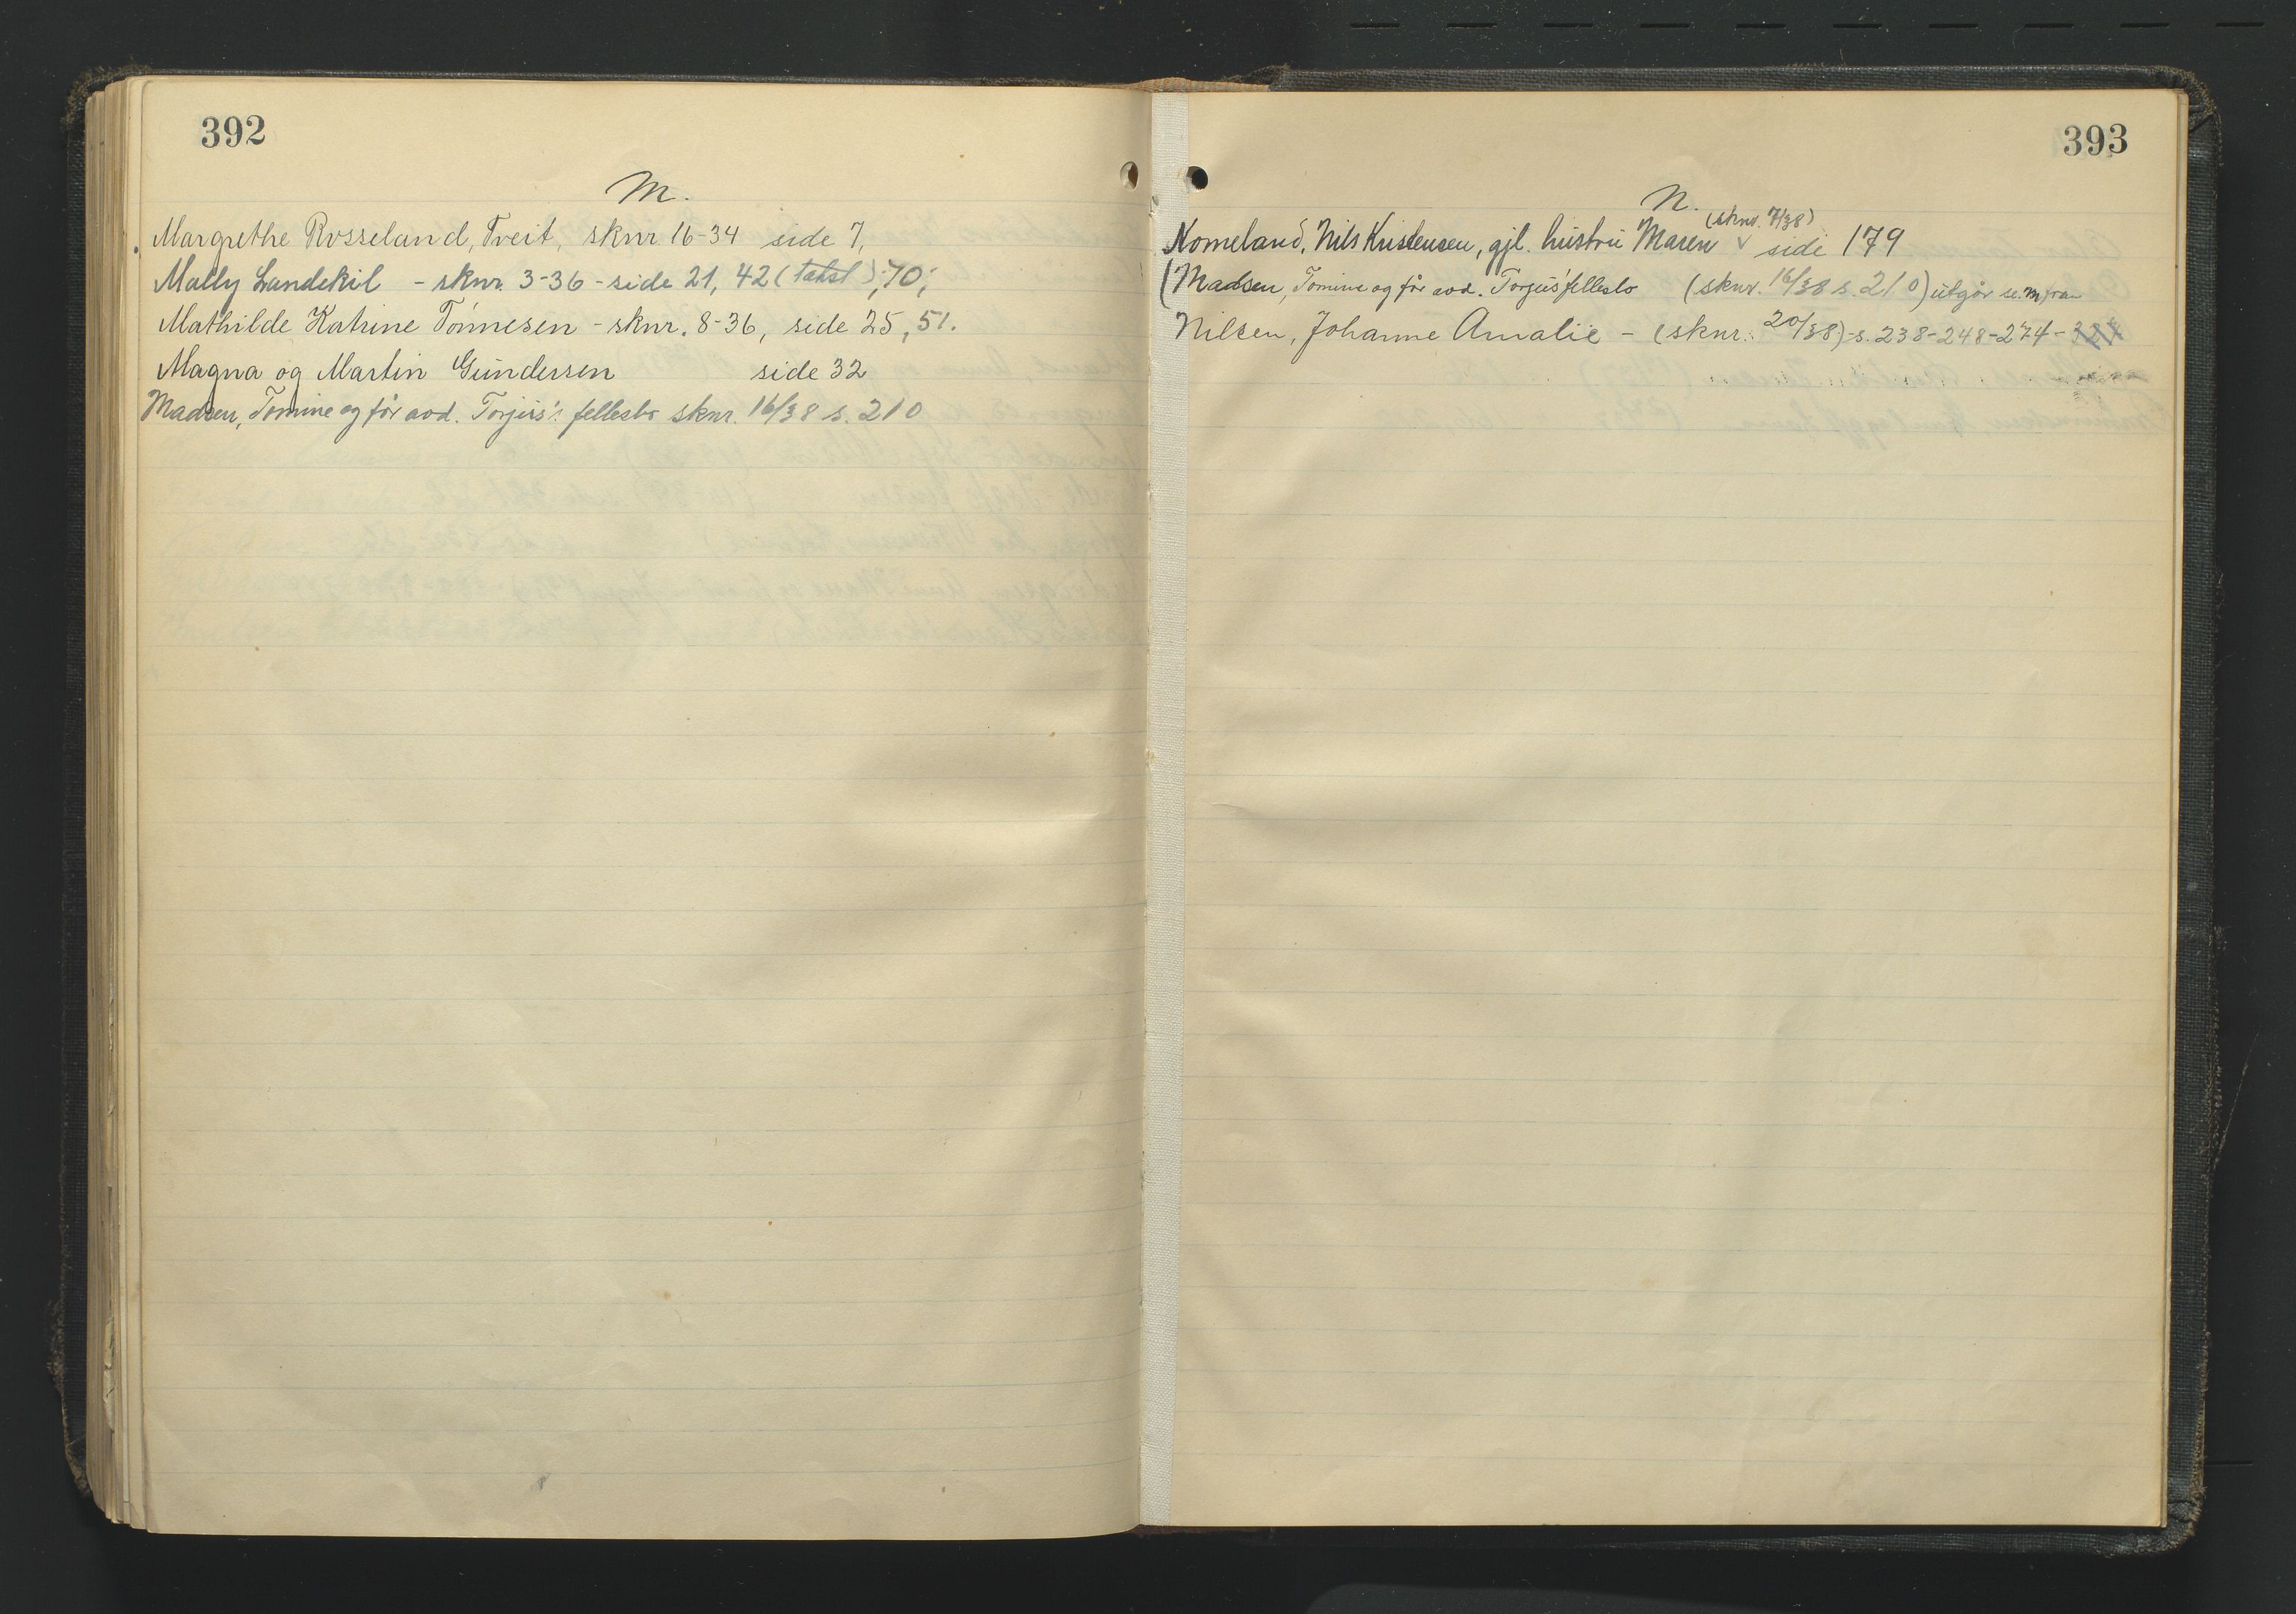 392
M.
Margrethe Rosseland, Tveit, sknr 16-34 side 7,
Mally Landekil - sknr. 3-36 - side 21, 42 (takst), 70;
Mathilde Katrine Tønnesen - sknr. 8-36, side 25, 51.
Magna og Martin Gundersen side 32
Madsen, Tomine og før avd. Torjus's fellesbo sknr. 16/38 s. 210
393
N.
(sknr. 7/38)
Nomeland, Nils Kristensen, gjl. hustru Maren v side 179
(Madsen, Tomine og før avd. Torjus' fellesbo (sknr. 16/38 s. 210) utgår se. M fran
Nilsen, Johanne Amalie - (sknr. 20/38) - s. 238-248-274-